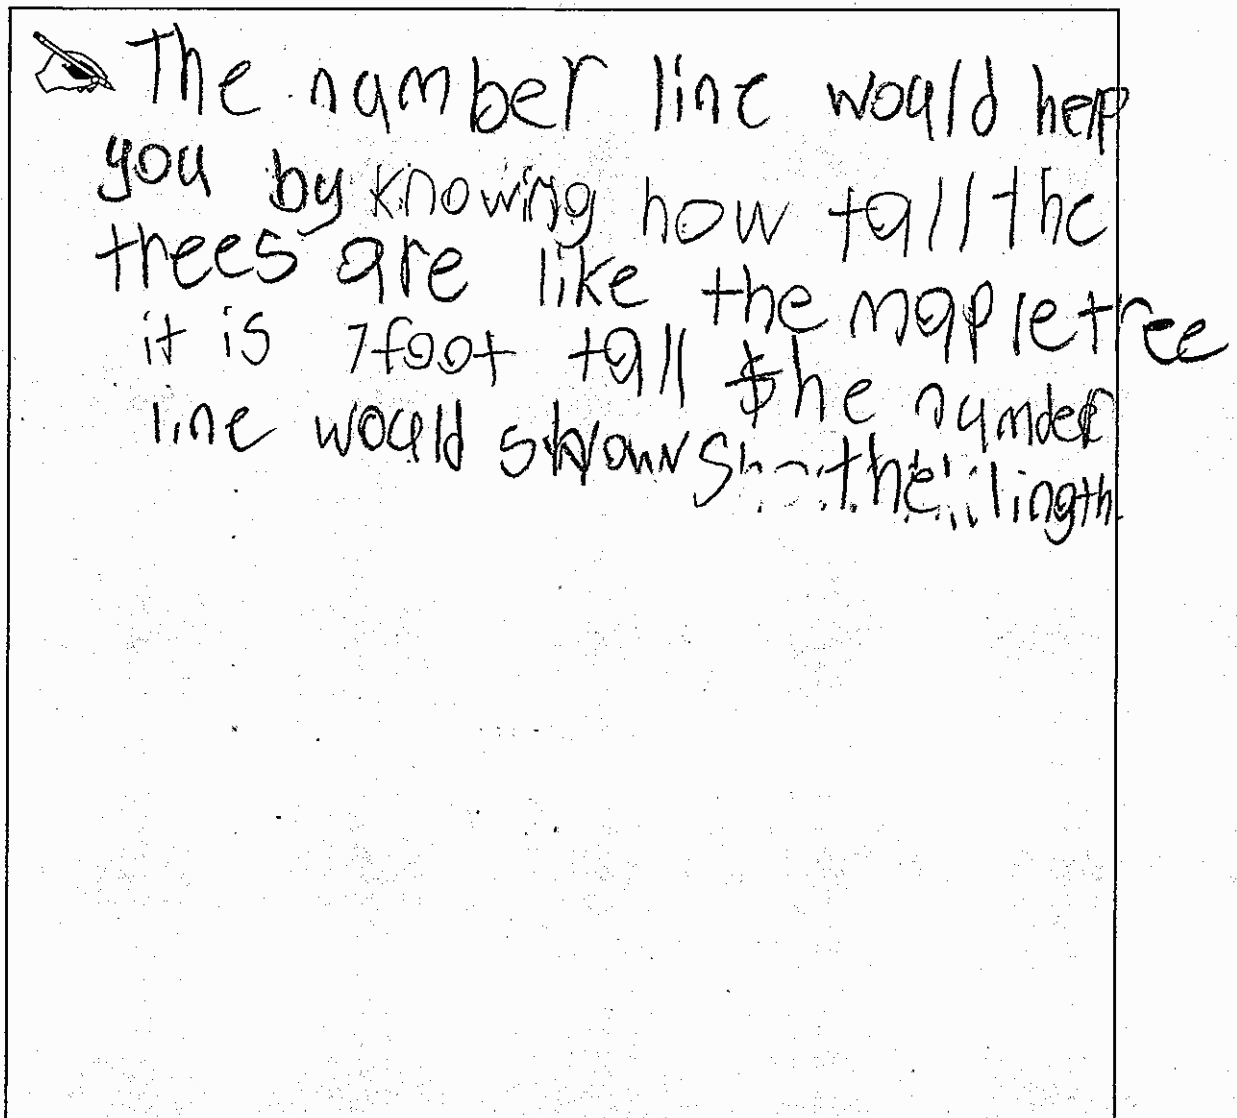 The number line would help
you by knowing how tall the
trees are like the maple tree
it is 7 foot tall the number
line would show the lingth